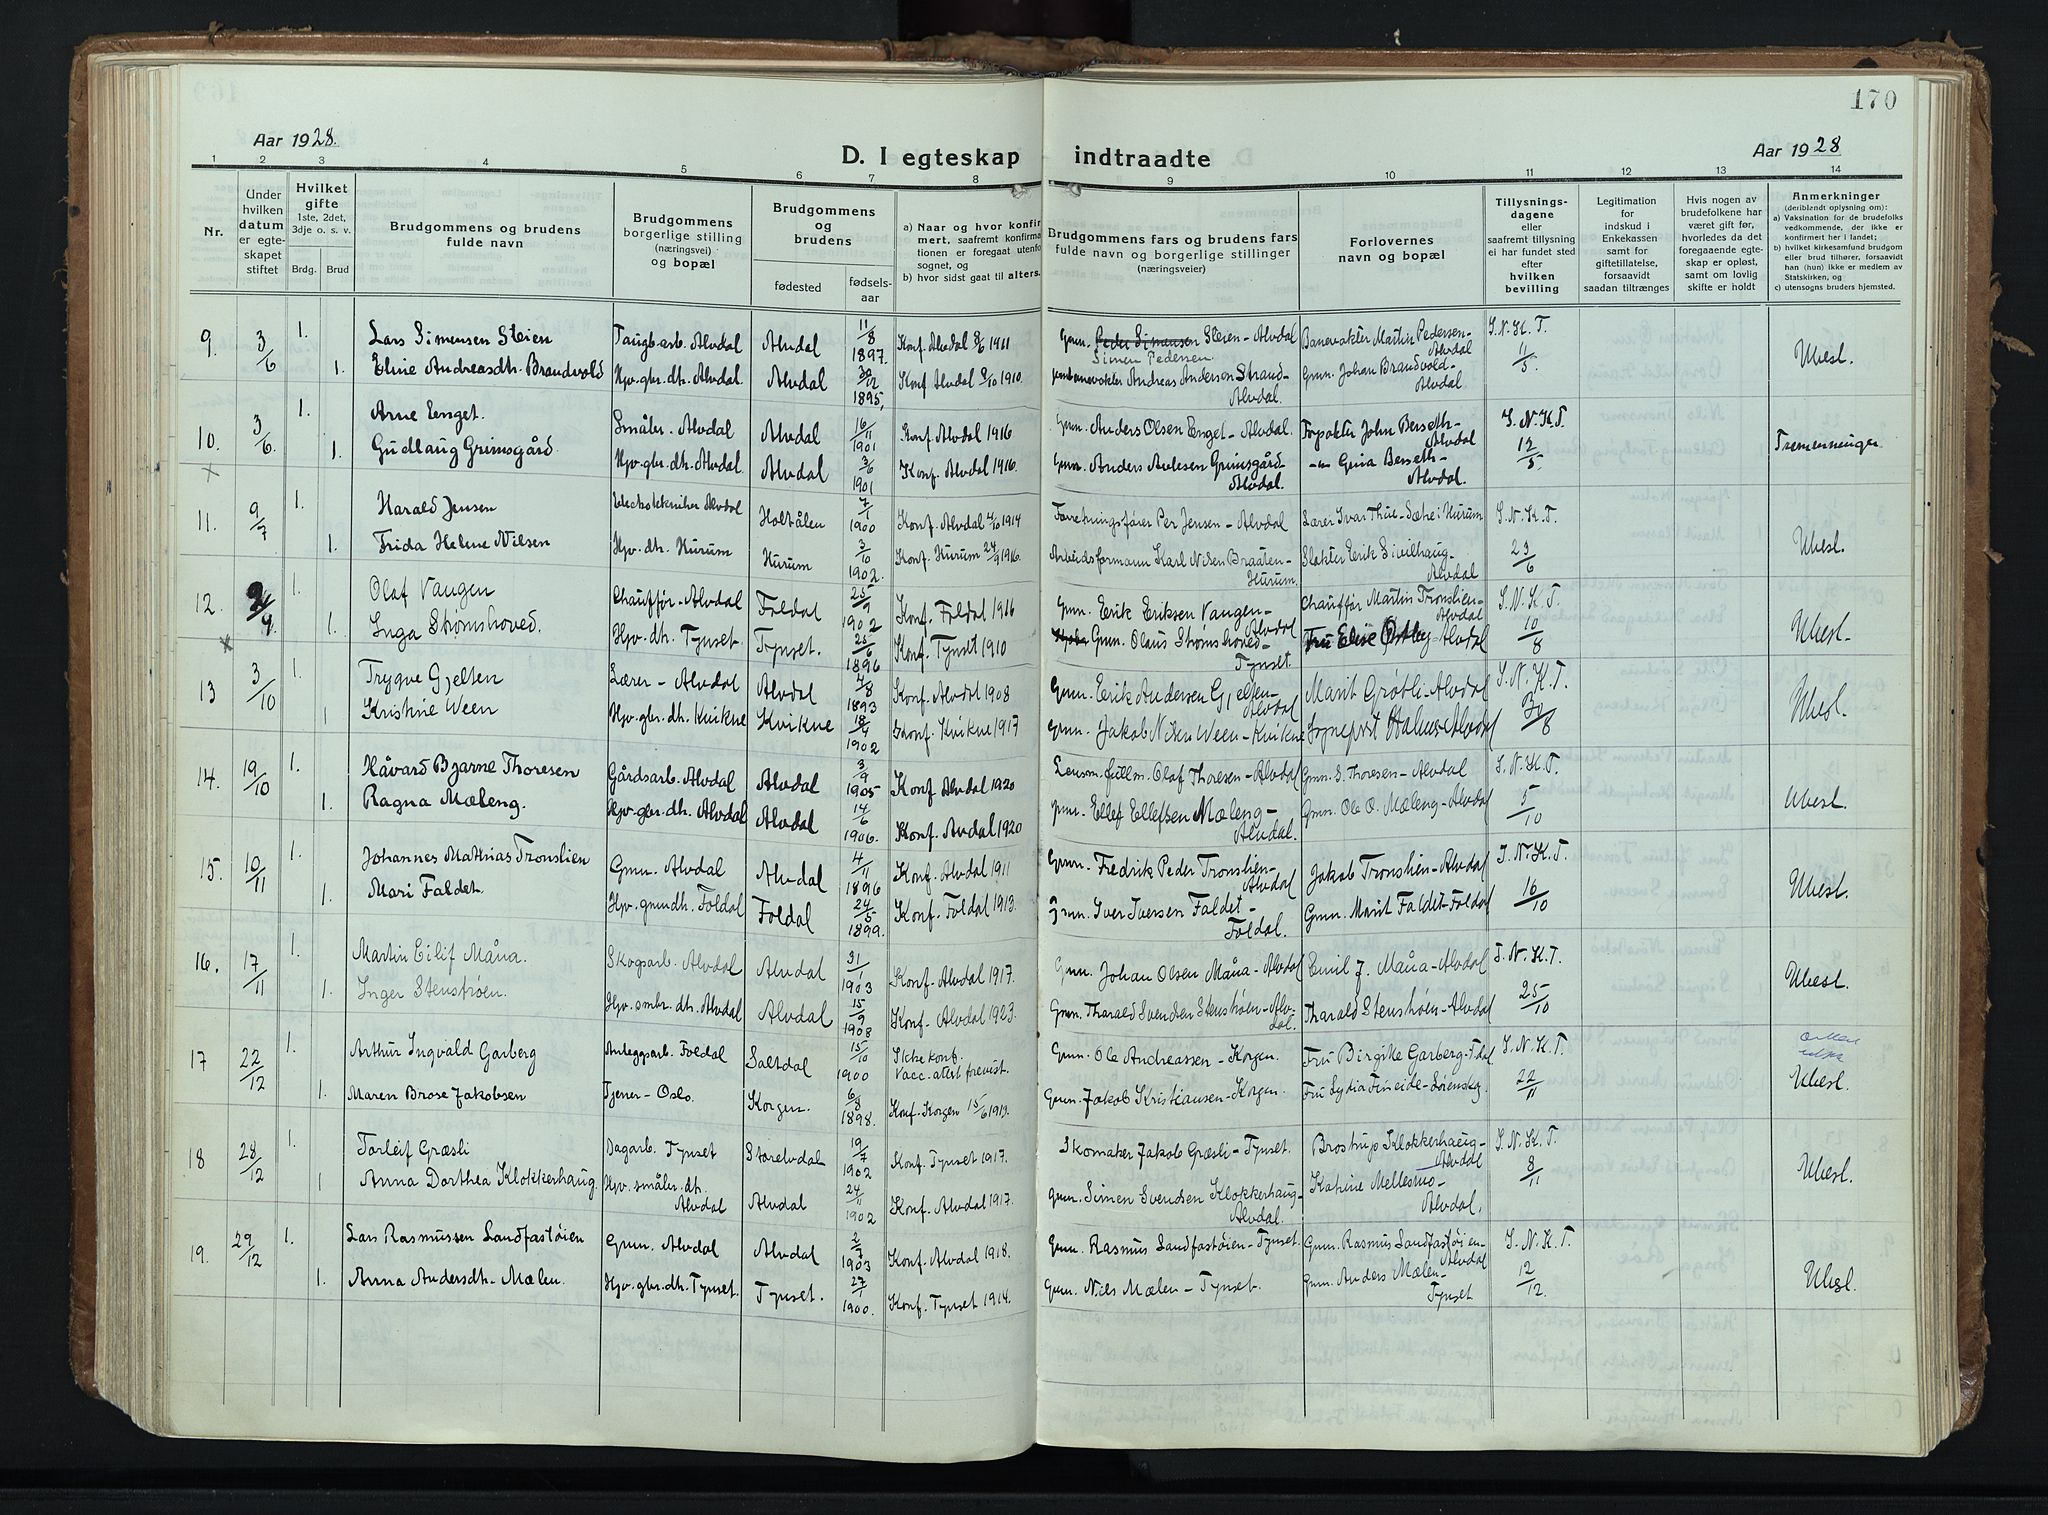 170
Aar 1928.
D. I egteskap indtraadte
Aar 1928
1 2 3 4 5 6 7 8 9 10 11 12 13 14
Nr.
Under hvilken datum er egteskapet stiftet
Hvilket gifte 1ste, 2det, 3dje o. s. v.
Brdg. Brud
Brudgommens og brudens fulde navn
Brudgommens borgerlige stilling (næringsvei) og bopæl
Brudgommens og brudens
fødested
fødselsaar
a) Naar og hvor konfirmert, saafremt konfirmationen er foregaat utenfor sognet, og
b) hvor sidst gaat til alters.
Brudgommens fars og brudens fars fulde navn og borgerlige stillinger (næringsveier)
Forlovernes navn og bopæl
Tillysningsdagene eller saafremt tillysning ei har fundet sted efter hvilken bevilling
Legitimation for indskud i Enkekassen samt for giftetillatelse, forsaavidt saadan tiltrænges
Hvis nogen av brudefolkene har været gift før, hvorledes da det foregaaende egteskap er opløst, samt om lovlig skifte er holdt
Anmerkninger (deriblendt oplysning om):
a) Vaksination for de brudefolks vedkommende, der ikke er konfirmert her i landet;
b) hvilket kirkesamfund brudgom eller brud tilhører, forsaavidt han (hun) ikke er medlem av Statskirken, og
c) utensogns bruders hjemsted.
9. 3/6 1. Lars Simensen Steien Taugb.arb. Alvdal Alvdal 11/8 1897. Konf. Alvdal 8/6 1911 Gmn. Peder Simensen Steien - Alvdal Banevokter Martin Pedersen - Alvdal S. N. K. T. 11/5 Ubesl.
Simen Pedersen
1. Eline Andreasdh. Brandvold Hjv. gbr. dh. Alvdal. Alvdal 30/12 1895, Konf Alvdal 9/10 1910. banevokter Andreas Anderson Strand - Alvdal Gmn. Johan Brandvold - Alvdal.
10. 3/6 1. Arne Eenget. Småbr. Alvdal Alvdal 16/11 1901 Konf. Alvdal 1916 Gmn. Anders Olsen Enget - Alvdal. Forpakter John Berseth - Alvdal S. N. K. T. 12/5 Tremenninger
1. Gudlaug Grimsgård Hjv. gbr. dh. Alvdal. Alvdal 3/6 1901 Konf. Alvdal 1916. Gmn. Anders Avlesen Grimsgård - Alvdal. -"- Gina Berseth - Alvdal.
11. 9/7 1. Harald Jensen Electrotekniker Alvdal Holtålen 7/1 1900 Konf. Alvdal 4/10 1914 Forretningsfører Per Jensen - Alvdal Lærer Ivar Thue - Sætre i Hurum S. N. K. T. 23/6 Ubesl.
1. Frida Helene Nilsen Hjv. dh. Hurum Hurum 3/10 1902. Konf. Hurum 24/9 1916. Arbeidsformann Karl Nilsen Braaten - Hurum. Slakter Erik Sivilhaug - Alvdal
12 /9. 1. Olaf Vangen Chauffør - Alvdal Foldal 25/9 1902 Konf. Foldal 1916 Gmn. Erik Eriksen Vangen - Alvdal Chauffør Martin Tronslien - Alvdal S. N. K. T. 10/8 Ubesl.
1. Inga Strømshoved. Hjv. dh. Tynset Tynset. 25/6 1896 Konf. Tynset 1910 Gmn. Olaus Strømshoved - Tynset Fru Elise Østby - Alvdal
13 3/10 1. Trygve Gjelten Lærer - Alvdal Alvdal 4/8 1893 Konf. Alvdal 1908 Gmn. Erik Andersen Gjelten - Alvdal Marit Grøtli - Alvdal S. N. K. T. /8 Ubesl.
1 Kristine Ween Hjv. gbr. dh. Kvikne Kvikne 18/4 1902 Konf. Kvikne 1917 Gmn. Jakob Nilsen Ween - Kvikne Sogneprest - Alvdal
14. 19/10 1. Håvard Bjarne Thoresen Gårdsarb. Alvdal Alvdal 3/9 1905 Konf Alvdal 1920 Lensm. fullm. Olaf Thoresen - Alvdal Gmn. S. Thoresen - Alvdal S. N. K. T. 5/10 Ubesl.
1. Ragna Mæleng. Hjv. gbr. dh. Alvdal Alvdal 14/6 1906. Konf. Avdal 1920 gmn. Ellef Ellefsen Mæleng - Alvdal. Gmn. Ole O. Mæleng - Alvdal
15. 10/11 1. Johannes Mathias Tronslien Gmn. Alvdal Alvdal 4/11 1896 Konf. Alvdal 1911 Gmn. Fredrik Peder Tronslien - Alvdal Jakob Tronslien - Alvdal S. N. K. T. 16/10 Ubesl.
1. Mari Faldet. Hjv. gmndh. Foldal Foldal 24/5 1899. Konf. Foldal 1913. Gmn. Iver Iversen Faldet - Foldal. Gmn. Marit Faldet - Foldal
16. 17/11 1. Martin Eilif Måna. Skogsarb. Alvdal Alvdal 31/1 1903 Konf. Alvdal 1917. Gmn. Johan Olsen Måna - Alvdal Emil J. Måna - Alvdal S. N. K. T. 25/10 Ubesl.
1. Inger Stenstrøen. Hjv. smbr. dh. Alvdal Alvdal 15/9 1908 Konf. Alvdal 1923. Gmn. Tharald Svendsen Stenstrøen - Alvdal. Tharald Stenstrøen - Alvdal
17 22/12 1. Arthur Ingvald Garberg Anleggsarb. Foldal Saltdal 15/10 1900 Ikke konf. Vacc. atest frevist. Gmn. Ole Andreassen - Korgen. Fru Birgitte Garberg - Fdal S. N. K. T. 22/11 Ubesl.
1. Maren Brose Jakobsen Tjener - Oslo. Korgen. 6/8 1898. Konf. Korgen 15/6 1913. Gmn. Jakob Kristiansen - Korgen Fru Lydia Fineide - Sørenskg.
18 28/12 1. Torleif Græsli Dagarb. Tynset Storelvdal 19/7 1902 Konf. Tynset 1917. Skomaker Jakob Græsli - Tynset. Brostrup Klokkerhaug - Alvdal S. N. K. T. 8/11 Ubesl.
1 Anna Dorthea Klokkerhaug. Hjv. småbr. dh. Alvdal Alvdal 24/11 1902 Konf. Alvdal 1917. Gmn. Simen Svendsen Klokkerhaug - Alvdal. Katrine Mellesmo - Alvdal.
19. 29/12 1. Lars Rasmussen Sandfastøien Gmn. Alvdal Alvdal 2/7 1903 Konf. Alvdal 1918. Gmn. Rasmus Sandfastøien - Tynset. Gmn. Rasmus Sandfastøien - Alvdal S. N. K. T. 12/12. Ubesl.
1. Anna Andersdh. Mælen. Hjv. gbr. dh. Tynset. Tynset. 27/1 1900. Konf. Tynset 1914. Gmn. Nils Mælen - Tynset. Gmn. Anders Mælen - Tynset